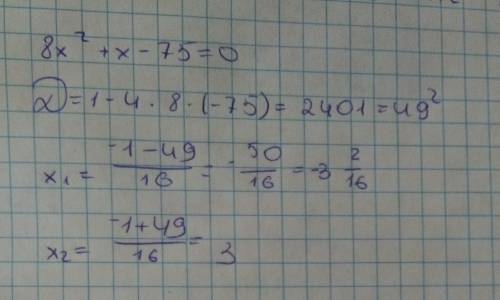 8x² + x - 75 = 0
D = 1 - 4 · 8 · (-75) = 2401 = 49²
x₁ = (-1 - 49)/16 = -50/16 = -3 2/16
x₂ = (-1 + 49)/16 = 3